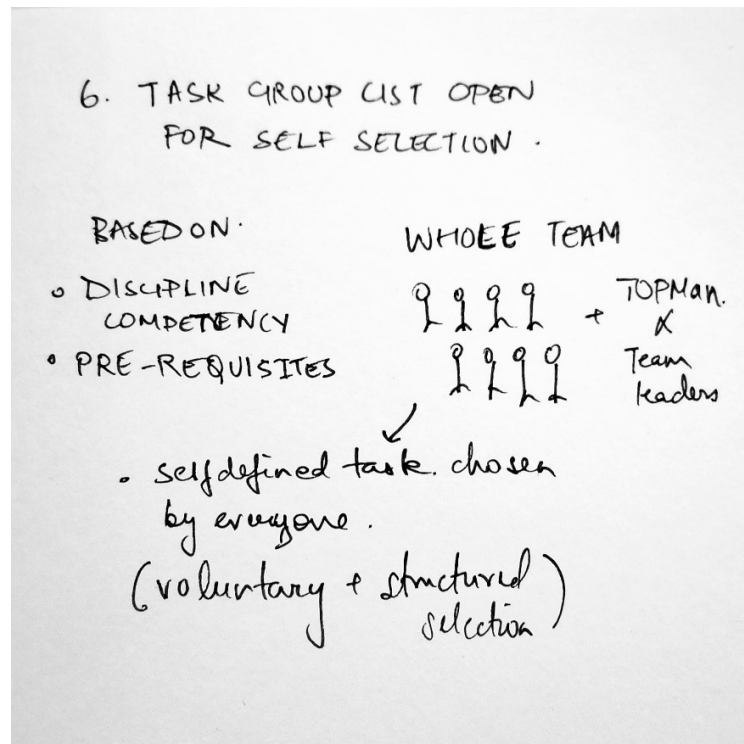 6. TASK GROUP LIST OPEN
FOR SELF SELECTION.
BASED ON.
DISCIPLINE
COMPETENCY
PRE-REQUISITES
WHOLE TEAM
+ TOPMan.
&
Team
leaders
self defined task. chosen
by everyone.
(voluntary + structured
selection)